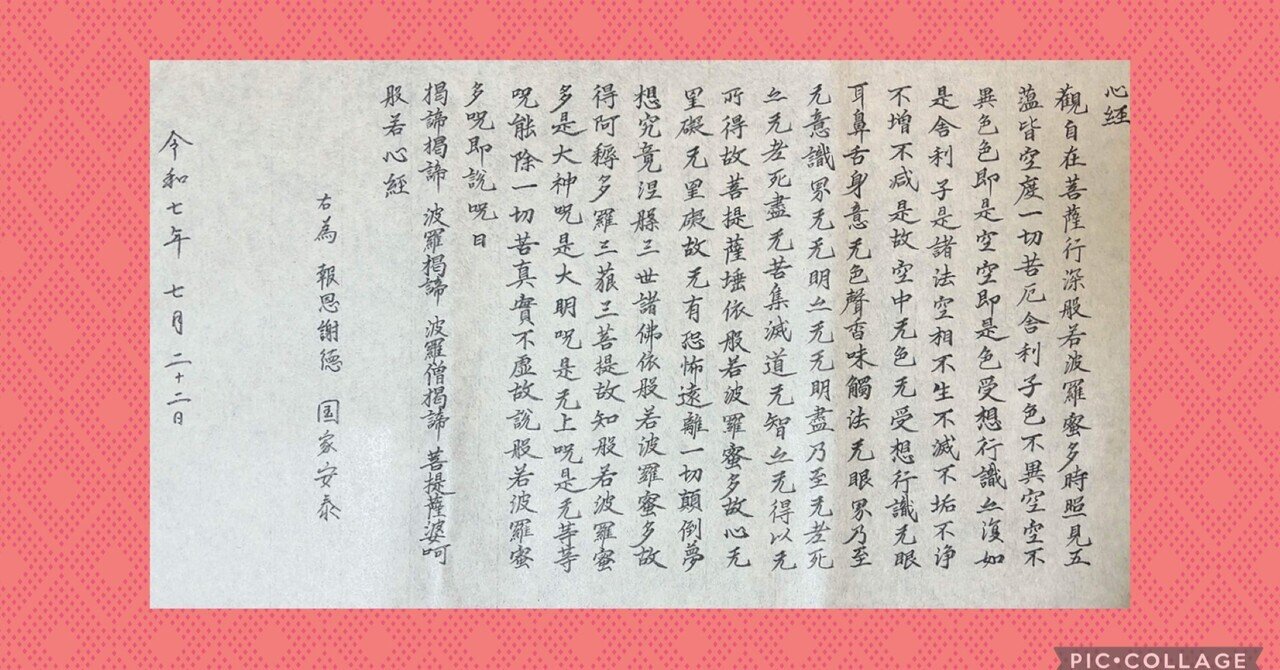 心経
觀自在菩薩行深般若波羅蜜多時照見五
蘊皆空度一切苦厄舍利子色不異空空不
異色色即是空空即是色受想行識亦復如
是舍利子是諸法空相不生不滅不垢不浄
不増不減是故空中无色无受想行識无眼
耳鼻舌身意无色聲香味觸法无眼界乃至
无意識界无无明亦无无明盡乃至无老死
亦无老死盡无苦集滅道无智亦无得以无
所得故菩提薩埵依般若波羅蜜多故心无
罣礙无罣礙故无有恐怖遠離一切顛倒夢
想究竟涅槃三世諸佛依般若波羅蜜多故
得阿耨多羅三藐三菩提故知般若波羅蜜
多是大神呪是大明呪是无上呪是无等等
呪能除一切苦真實不虚故說般若波羅蜜
多呪即說呪曰
揭諦揭諦 波羅揭諦 波羅僧揭諦 菩提薩婆呵
般若心経
右為 報恩謝徳 国家安泰
令和七年 七月 二十二日
PIC•COLLAGE